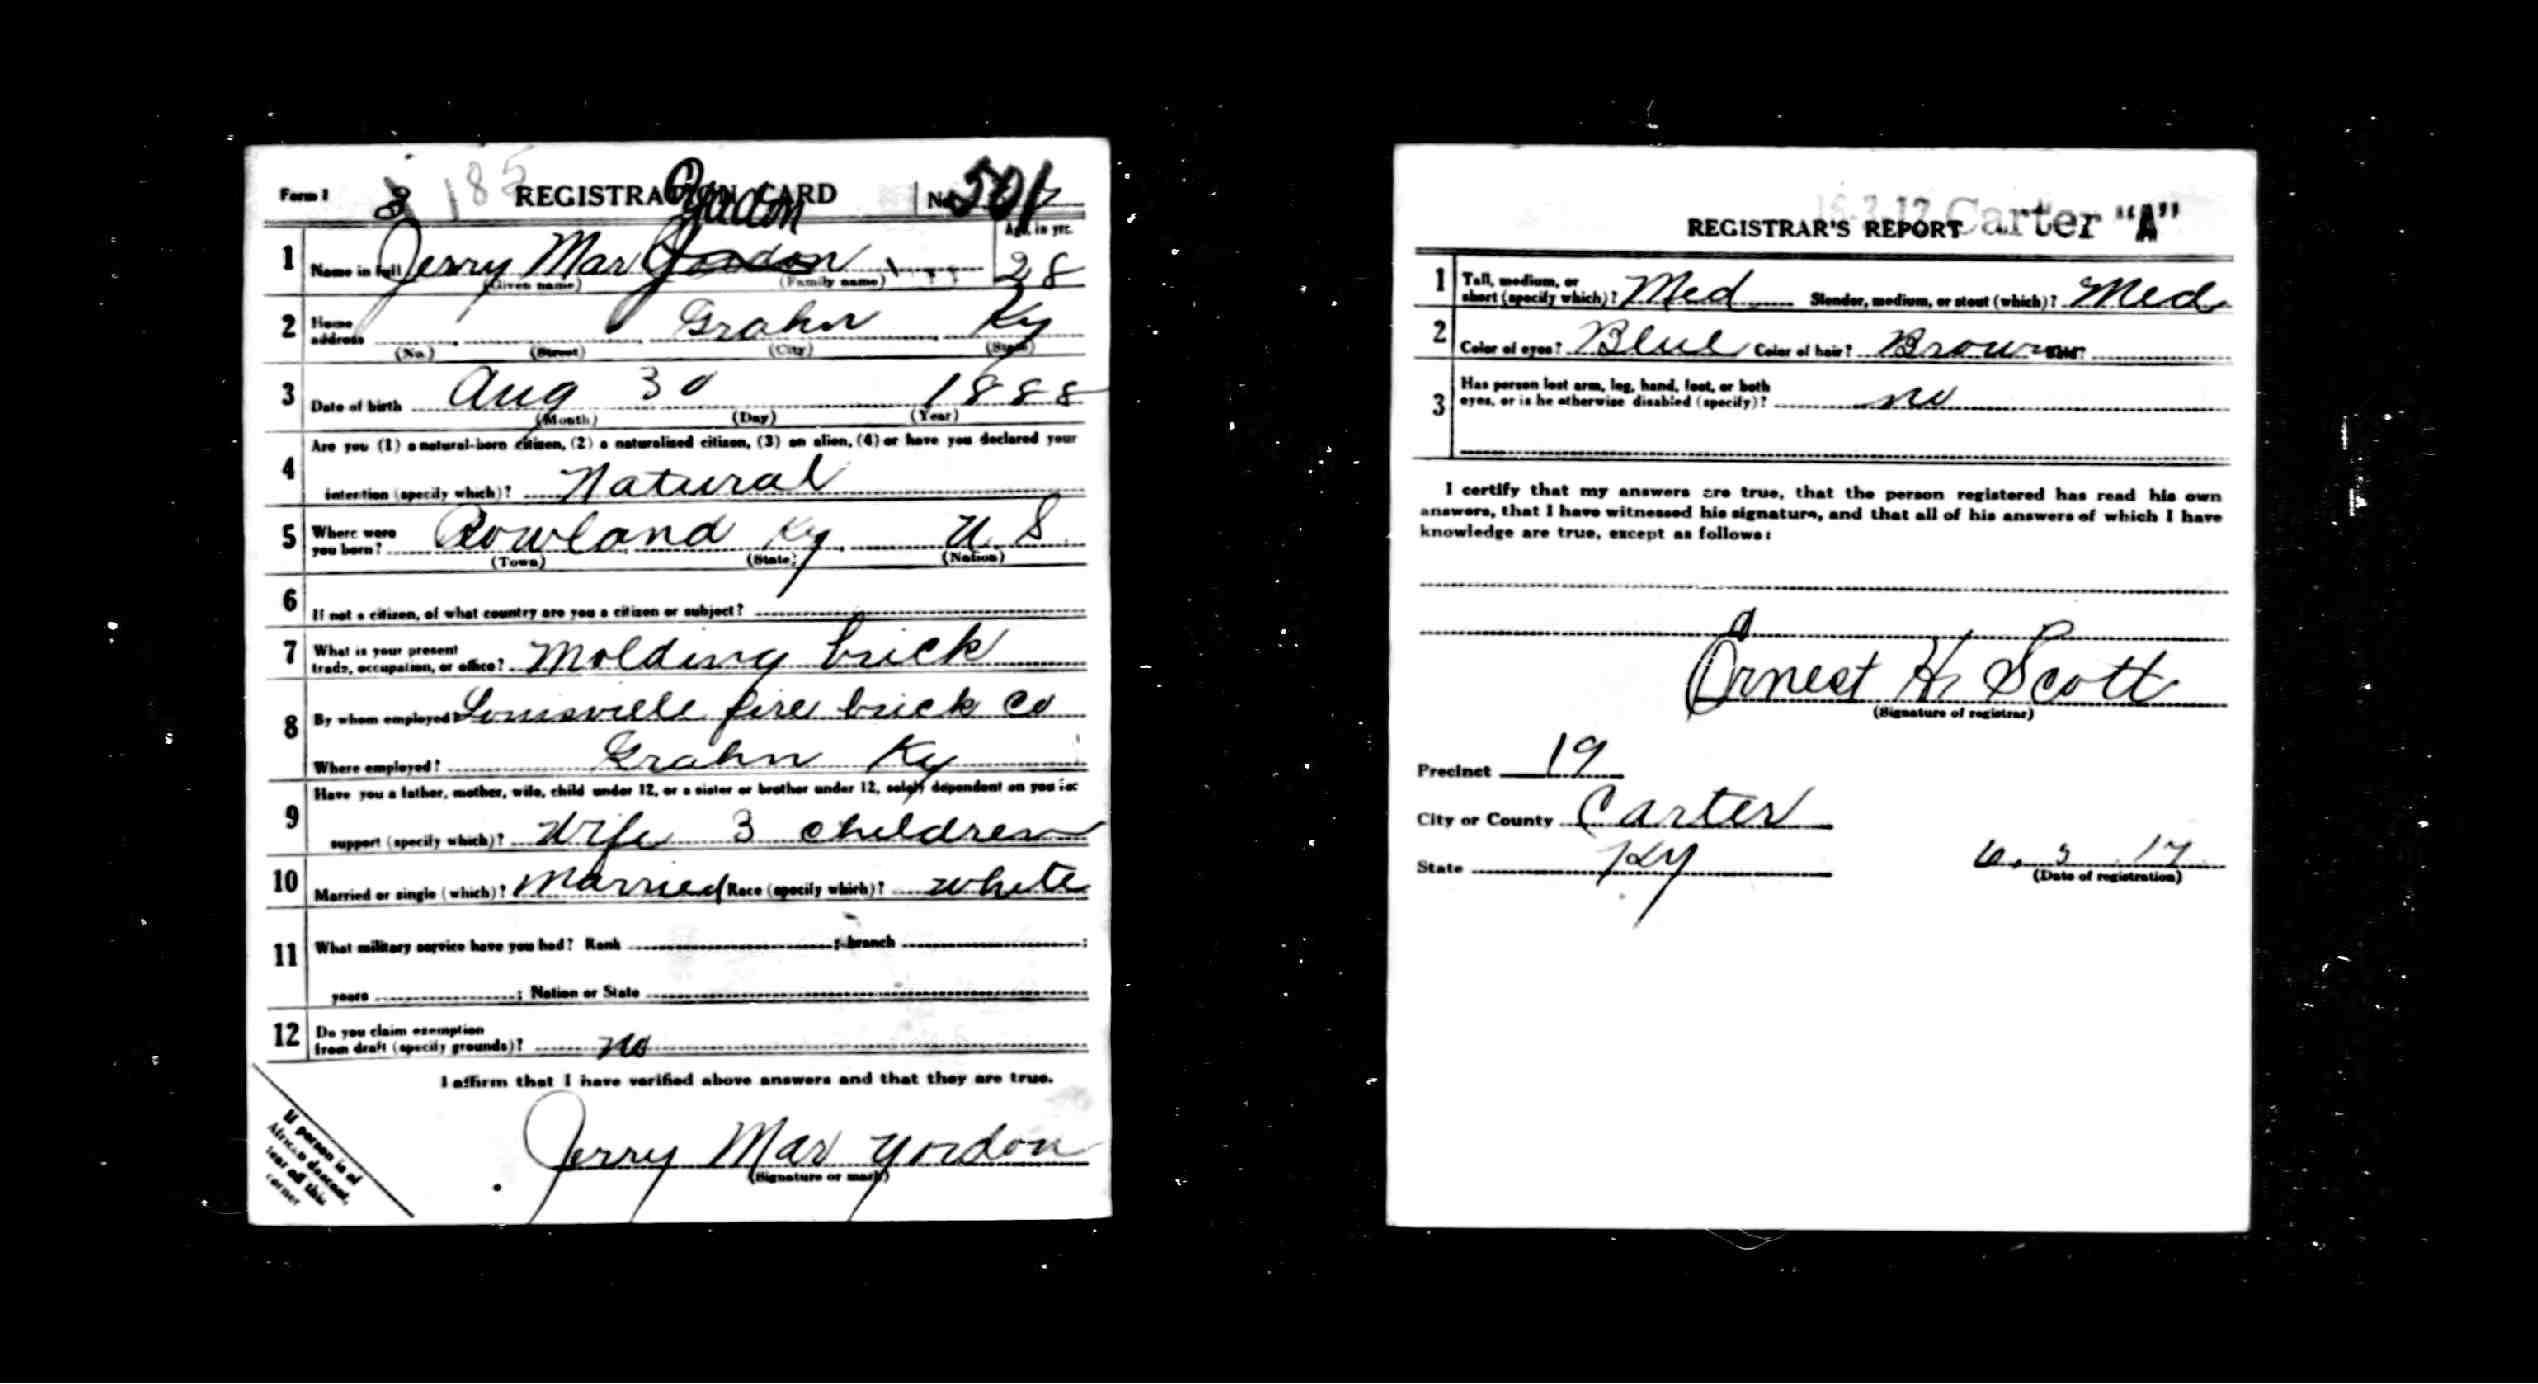 Form 1 3 185 REGISTRATION CARD No. 501
Age, in yrs.
1 Name in full Jerry Mar Yordon 28
(Given name) (Family name)
2 Home address Grahn Ky
(No.) (Street) (City) (State)
3 Date of birth Aug 30 1888
(Month) (Day) (Year)
Are you (1) a natural-born citizen, (2) a naturalized citizen, (3) an alien, (4) or have you declared your
4 intention (specify which)? Natural
5 Where were you born? Rowland Ky U S
(Town) (State) (Nation)
6 If not a citizen, of what country are you a citizen or subject?
7 What is your present
trade, occupation, or office? Molding brick
8 By whom employed? Louisville fire brick Co
Where employed? Grahn Ky
Have you a father, mother, wife, child under 12, or a sister or brother under 12, solely dependent on you for
9 support (specify which)? Wife 3 children
10 Married or single (which)? Married Race (specify which)? white
11 What military service have you had? Rank ; branch ;
years ; Nation or State
12 Do you claim exemption
from draft (specify grounds)? no
I affirm that I have verified above answers and that they are true.
Jerry Mar Yordon
(Signature or mark)
If person is of
African descent,
tear off this
corner
REGISTRAR'S REPORT Carter "A"
1 Tall, medium, or
short (specify which)? Med Slender, medium, or stout (which)? Med
2 Color of eyes? Blue Color of hair? Brown Bald?
Has person lost arm, leg, hand, foot, or both
3 eyes, or is he otherwise disabled (specify)? no
I certify that my answers are true, that the person registered has read his own
answers, that I have witnessed his signature, and that all of his answers of which I have
knowledge are true, except as follows:
Ernest H. Scott
(Signature of registrar)
Precinct 19
City or County Carter
State Ky 6. 5 17
(Date of registration)